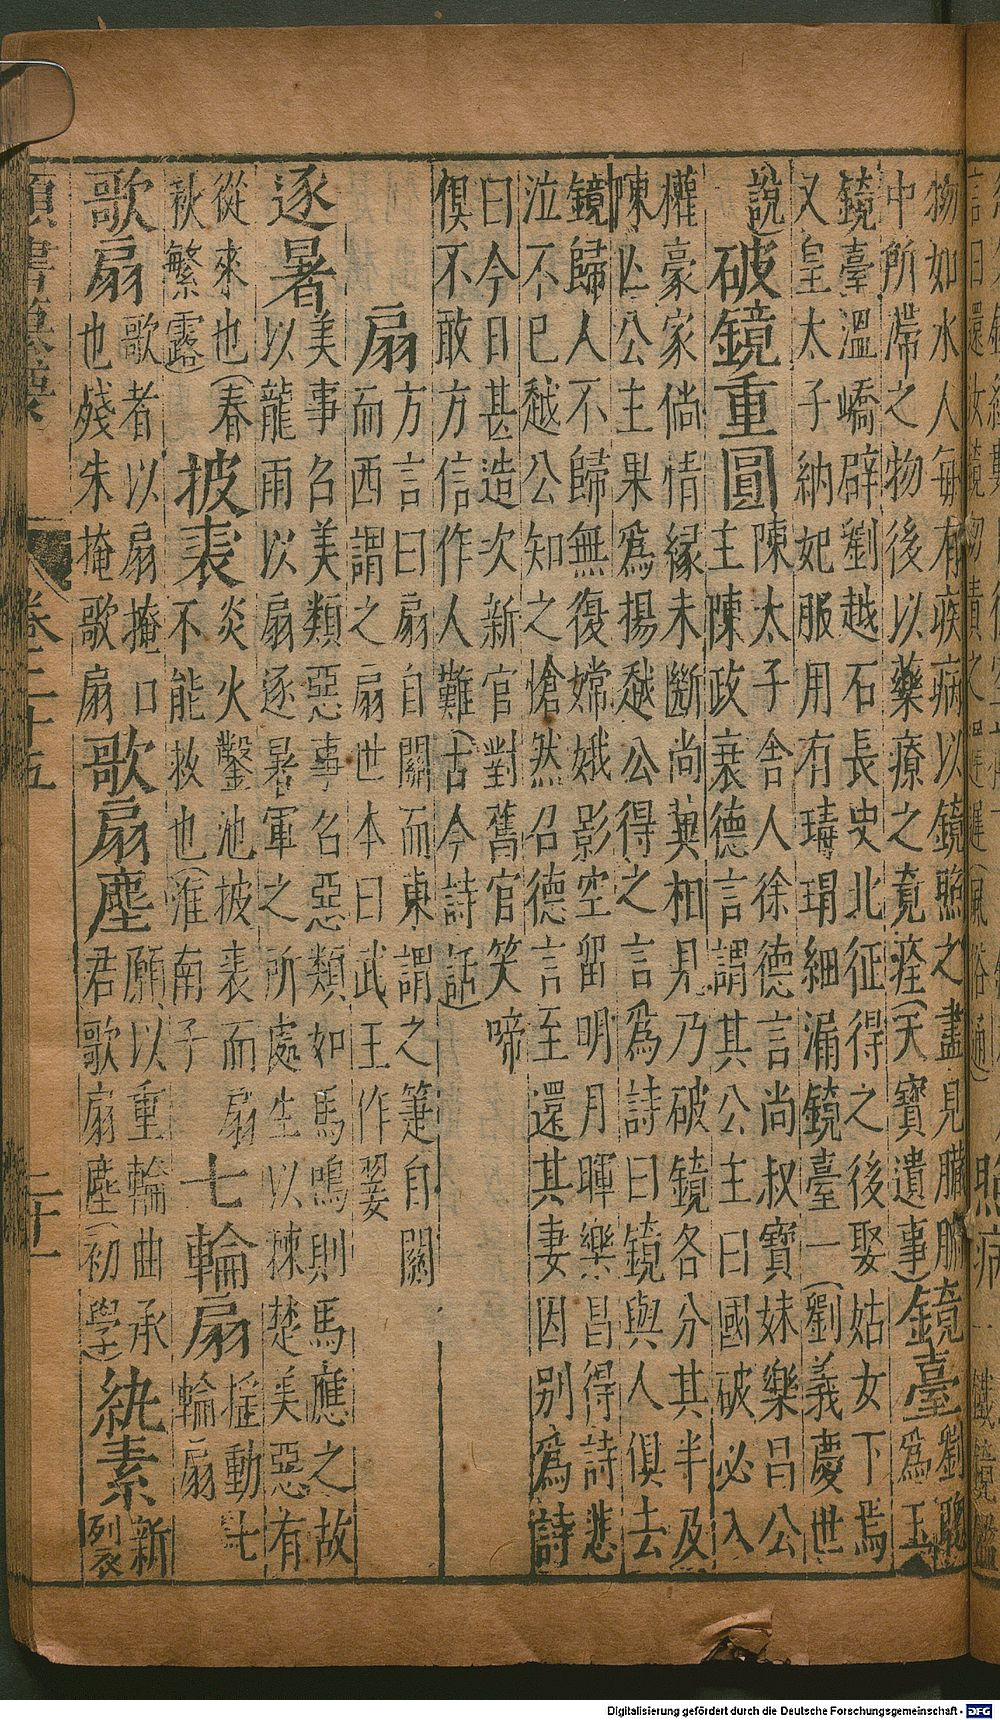 物如水人每有疾病以鏡照之盡見臟腑鏡臺劉聰爲玉
中所滯之物後以藥療之竟痊(天寶遺事)
鏡臺溫嶠辟劉越石長史北征得之後娶姑女下焉
又皇太子納妃服用有瑇瑁細漏鏡臺一(劉義慶世
說)破鏡重圓陳太子舍人徐德言尚叔寶妹樂昌公
主陳政衰德言謂其公主曰國破必入
權豪家倘情緣未斷尚冀相見乃破鏡各分其半及
陳亡公主果爲揚越公得之言爲詩曰鏡與人俱去
鏡歸人不歸無復嫦娥影空留明月暉樂昌得詩悲
泣不已越公知之愴然召德言至還其妻因別爲詩
曰今日甚造次新官對舊官笑啼
俱不敢方信作人難(古今詩話)
扇方言曰扇自關而東謂之箑自關
而西謂之扇世本曰武王作翣
逐暑美事召美類惡事召惡類如馬鳴則馬應之故
以龍雨以扇逐暑軍之所處生以棘楚美惡有
從來也(春
秋繁露)披裘炎火鑿池披裘而扇
不能救也(淮南子七輪扇搖動七
輪扇
歌扇歌者以扇掩口
也殘朱掩歌扇歌扇塵願以重輪曲承
君歌扇塵(初學)紈素新
列衣
類書纂要
卷二十五
二十一
Digitalisierung gefördert durch die Deutsche Forschungsgemeinschaft - DFG